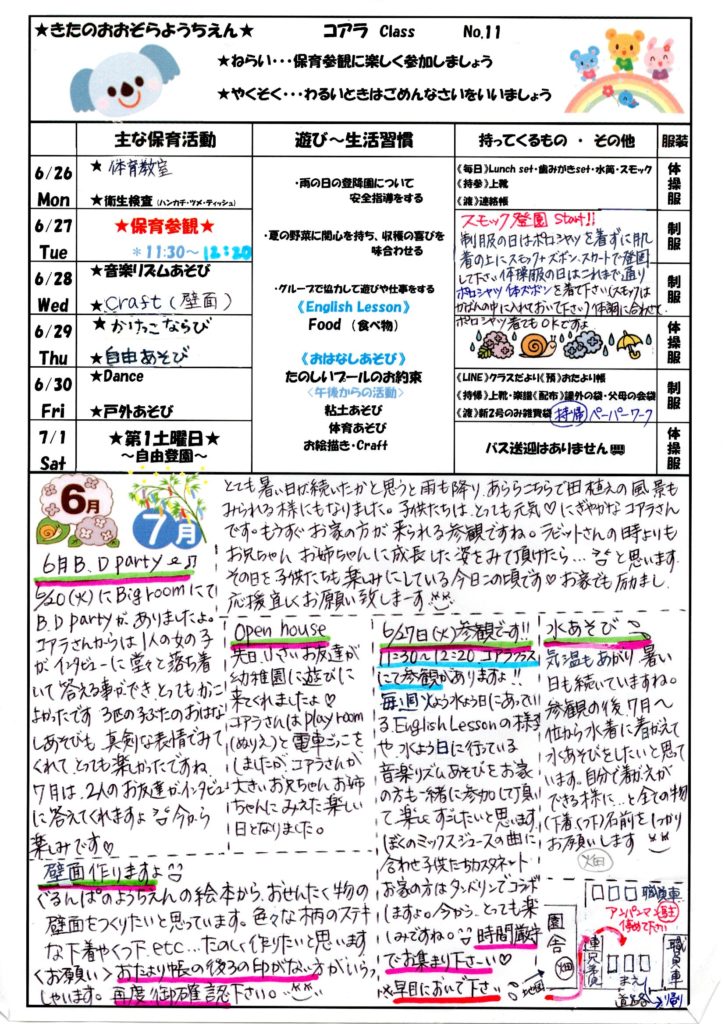 ★きたのおおぞらようちえん★ コアラ Class No.11
★ねらい・・・保育参観に楽しく参加しましょう
★やくそく・・・わるいときはごめんなさいをいいましょう
主な保育活動 遊び～生活習慣 持ってくるもの ・ その他 服装
6/26 Mon
★体育教室
★衛生検査(ハンカチ・ツメ・ティッシュ)
6/27 Tue
★保育参観★
＊11:30～12:20
6/28 Wed
★音楽リズムあそび
★Craft(壁面)
6/29 Thu
★かけっこならび
★自由あそび
6/30 Fri
★Dance
★戸外あそび
7/1 Sat
★第1土曜日★
～自由登園～
・雨の日の登降園について
安全指導をする
・夏の野菜に関心を持ち、収穫の喜びを
味合わせる
・グループで協力して遊びや仕事をする
《English Lesson》
Food (食べ物)
《おはなしあそび》
たのしいプールのお約束
〈午後からの活動〉
粘土あそび
体育あそび
お絵描き・Craft
《毎日》Lunch set・歯みがきset・水筒・スモック
《持参》上靴
《渡》連絡帳
スモック登園 Start!!
制服の日はポロシャツを着ずに肌
着の上にスモック+ズボン・スカートで登園
して下さい 体操服の日はこれまで通り
ポロシャツ 体ズボンを着て下さい(スモックは
かばんの中に入れておいて下さい) 体調に合わせて
ポロシャツ着てもOKですよ
《LINE》クラスだより《預》おたより帳
《持帰》上靴・楽譜《配布》課外の袋・父母の会袋
《渡》新2号のみ雑費袋 持帰 ペーパーワーク
バス送迎はありません
体操服
制服
制服
体操服
制服
体操服
6月
7月
とても暑い日が続いたかと思うと雨も降り、あちらこちらで田植えの風景も
みられる様にもなりました。子供たちは、とっても元気♡にぎやかなコアラさん
です。もうすぐお家の方が来られる参観ですね。ラビットさんの時よりも
お兄ちゃん お姉ちゃんに成長した姿をみて頂けたら… と思います
その日を子供たちも楽しみにしている今日この頃です♡お家でも励まし、
応援宜しくお願い致します
6月B.D party
6/20(火)にBig roomにて
B.D partyがありましたよ。
コアラさんからは1人の女の子
がインタビューに堂々と落ち着
いて答える事ができ、とってもかっこ
よかったです 3匹の子ぶたのおはな
しあそびも、真剣な表情でみて
くれて、とっても楽しかったですね
7月は、2人のお友達がインタビュー
に答えてくれますよ 今から
楽しみです♡
Open house
先日、小さいお友達が
幼稚園に遊びに
来てくれましたよ♡
コアラさんはplay room
(ぬりえ)と電車ごっこを
しましたが、コアラさんが
大きいお兄ちゃん、お姉
ちゃんにみえた楽しい
日となりました。
6/27日(火)参観です!!
11:30～12:20 コアラクラス
にて参観がありますよ!!
毎週火よう水よう日にあってい
る、English Lessonの様子
や、水よう日に行っている
音楽リズムあそびをお家
の方も一緒に参加して頂い
て楽しくすごしたいと思います
ぼくのミックスジュースの曲に
合わせ子供たちカスタネット
お家の方はタンバリンでコラボ
しますよ。今から、とっても楽
しみですね。時間厳守
でお集まり下さい♡
早目においで下さい
水あそび
気温もあがり、暑い
日も続いていますね。
参観の後、7月へ
他から水着に着がえて
水あそびをしたいと思って
います。自分で着がえが
できる様に…と全ての物
(下着くつ下)名前をしっかり
お願いします
壁面作りますよ
ぐるんぱのようちえんの絵本から、おせんたく物の
壁面をつくりたいと思っています。色々な柄のステキ
な下着やくつ下etc…たのしく作りたいと思います
〈お願い〉おたより帳の後ろの印がない方がいらっ
しゃいます。再度御確認下さい。
畑
園舎
畑
地図
職員車
アンパンマン駐
停めて下さい
職員車
まえ
道路